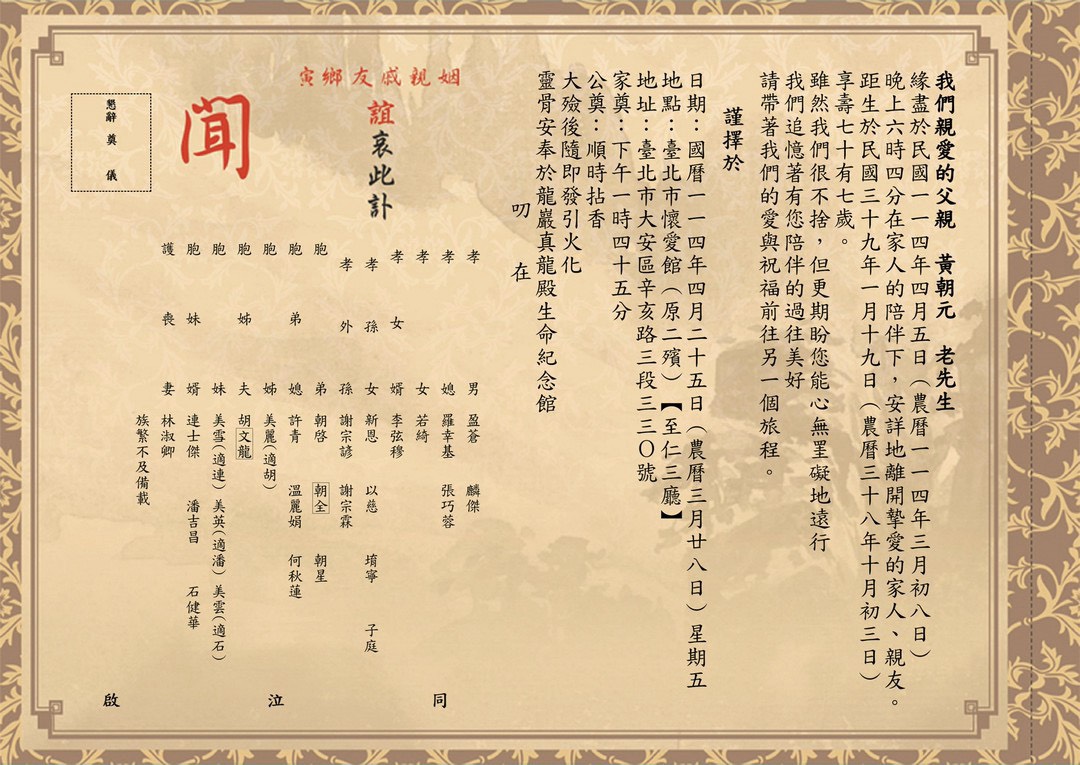 我們親愛的父親　黃朝元　老先生
緣盡於民國一一四年四月五日（農曆一一四年三月初八日）
晚上六時四分在家人的陪伴下，安詳地離開摯愛的家人、親友。
距生於民國三十九年一月十九日（農曆三十八年十月初三日）
享壽七十有七歲。
雖然我們很不捨，但更期盼您能心無罣礙地遠行
我們追憶著有您陪伴的過往美好
請帶著我們的愛與祝福前往另一個旅程。
謹擇於
日期：國曆一一四年四月二十五日（農曆三月廿八日）星期五
地點：臺北市懷愛館（原二殯）【至仁三廳】
地址：臺北市大安區辛亥路三段三三〇號
家奠：下午一時四十五分
公奠：順時拈香
大殮後隨即發引火化
靈骨安奉於龍巖真龍殿生命紀念館
叨　在
寅鄉友戚親姻
誼哀此訃
聞
懇辭　奠　儀
孝男　盈蒼　麟傑
孝媳　羅幸基　張巧蓉
孝女　若綺
孝女婿　李弦穆
孝孫女　新恩　以慈　堉寧　子庭
孝外孫　謝宗諺　謝宗霖
胞弟　朝啓　朝全　朝星
胞弟媳　許青　溫麗娟　何秋蓮
胞姊　美麗（適胡）
胞姊夫　胡文龍
胞妹　美雪（適連）　美英（適潘）　美雲（適石）
胞妹婿　連士傑　潘吉昌　石健華
護喪妻　林淑卿
族繁不及備載
同　泣　啟